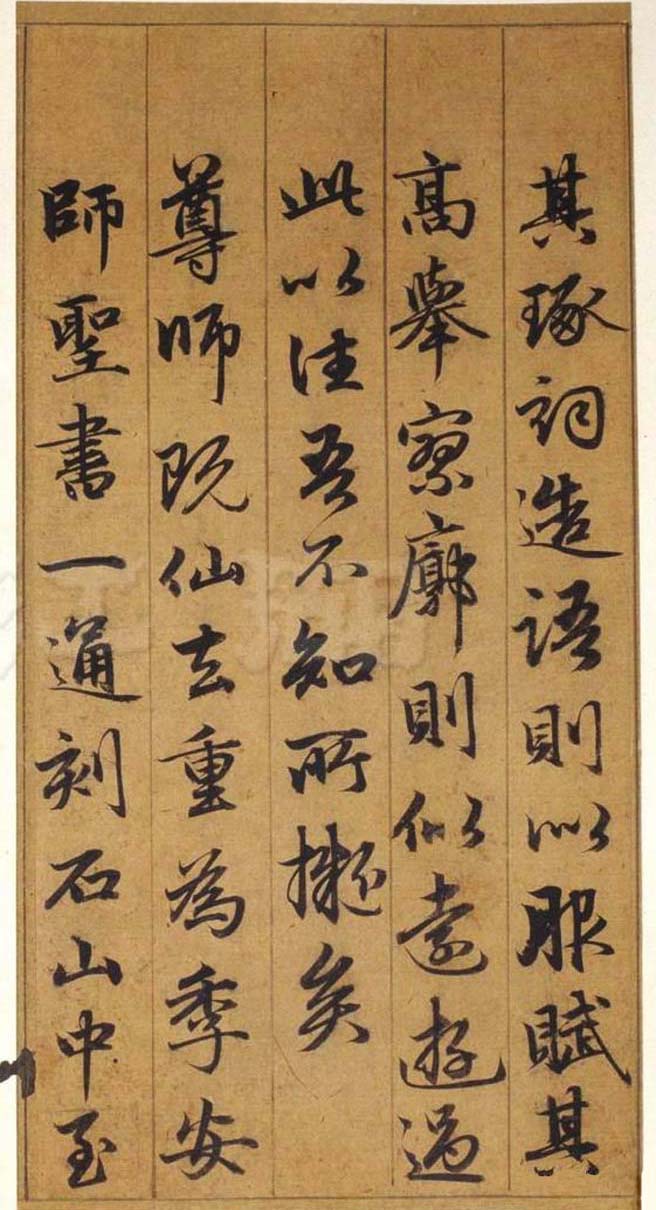 其琢詞造語則以服賦其
高舉寥廓則似遠遊過
此以往吾不知所擬矣
尊師既仙去重為季安
師聖書一通刻石山中至